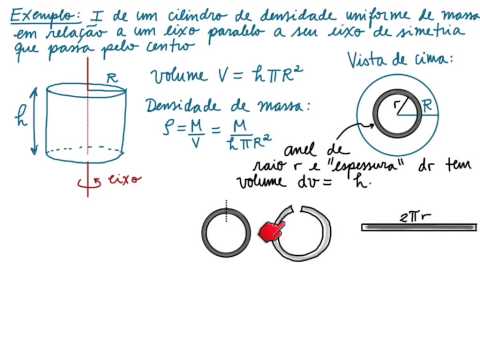 Exemplo: I de um cilindro de densidade uniforme de massa
em relação a um eixo paralelo a seu eixo de simetria
que passa pelo centro
R
h
eixo
volume V = hπR²
Densidade de massa:
ρ = M/V = M/hπR²
Vista de cima:
r
R
anel de
raio r e "espessura" dr tem
volume dv = h.
2πr